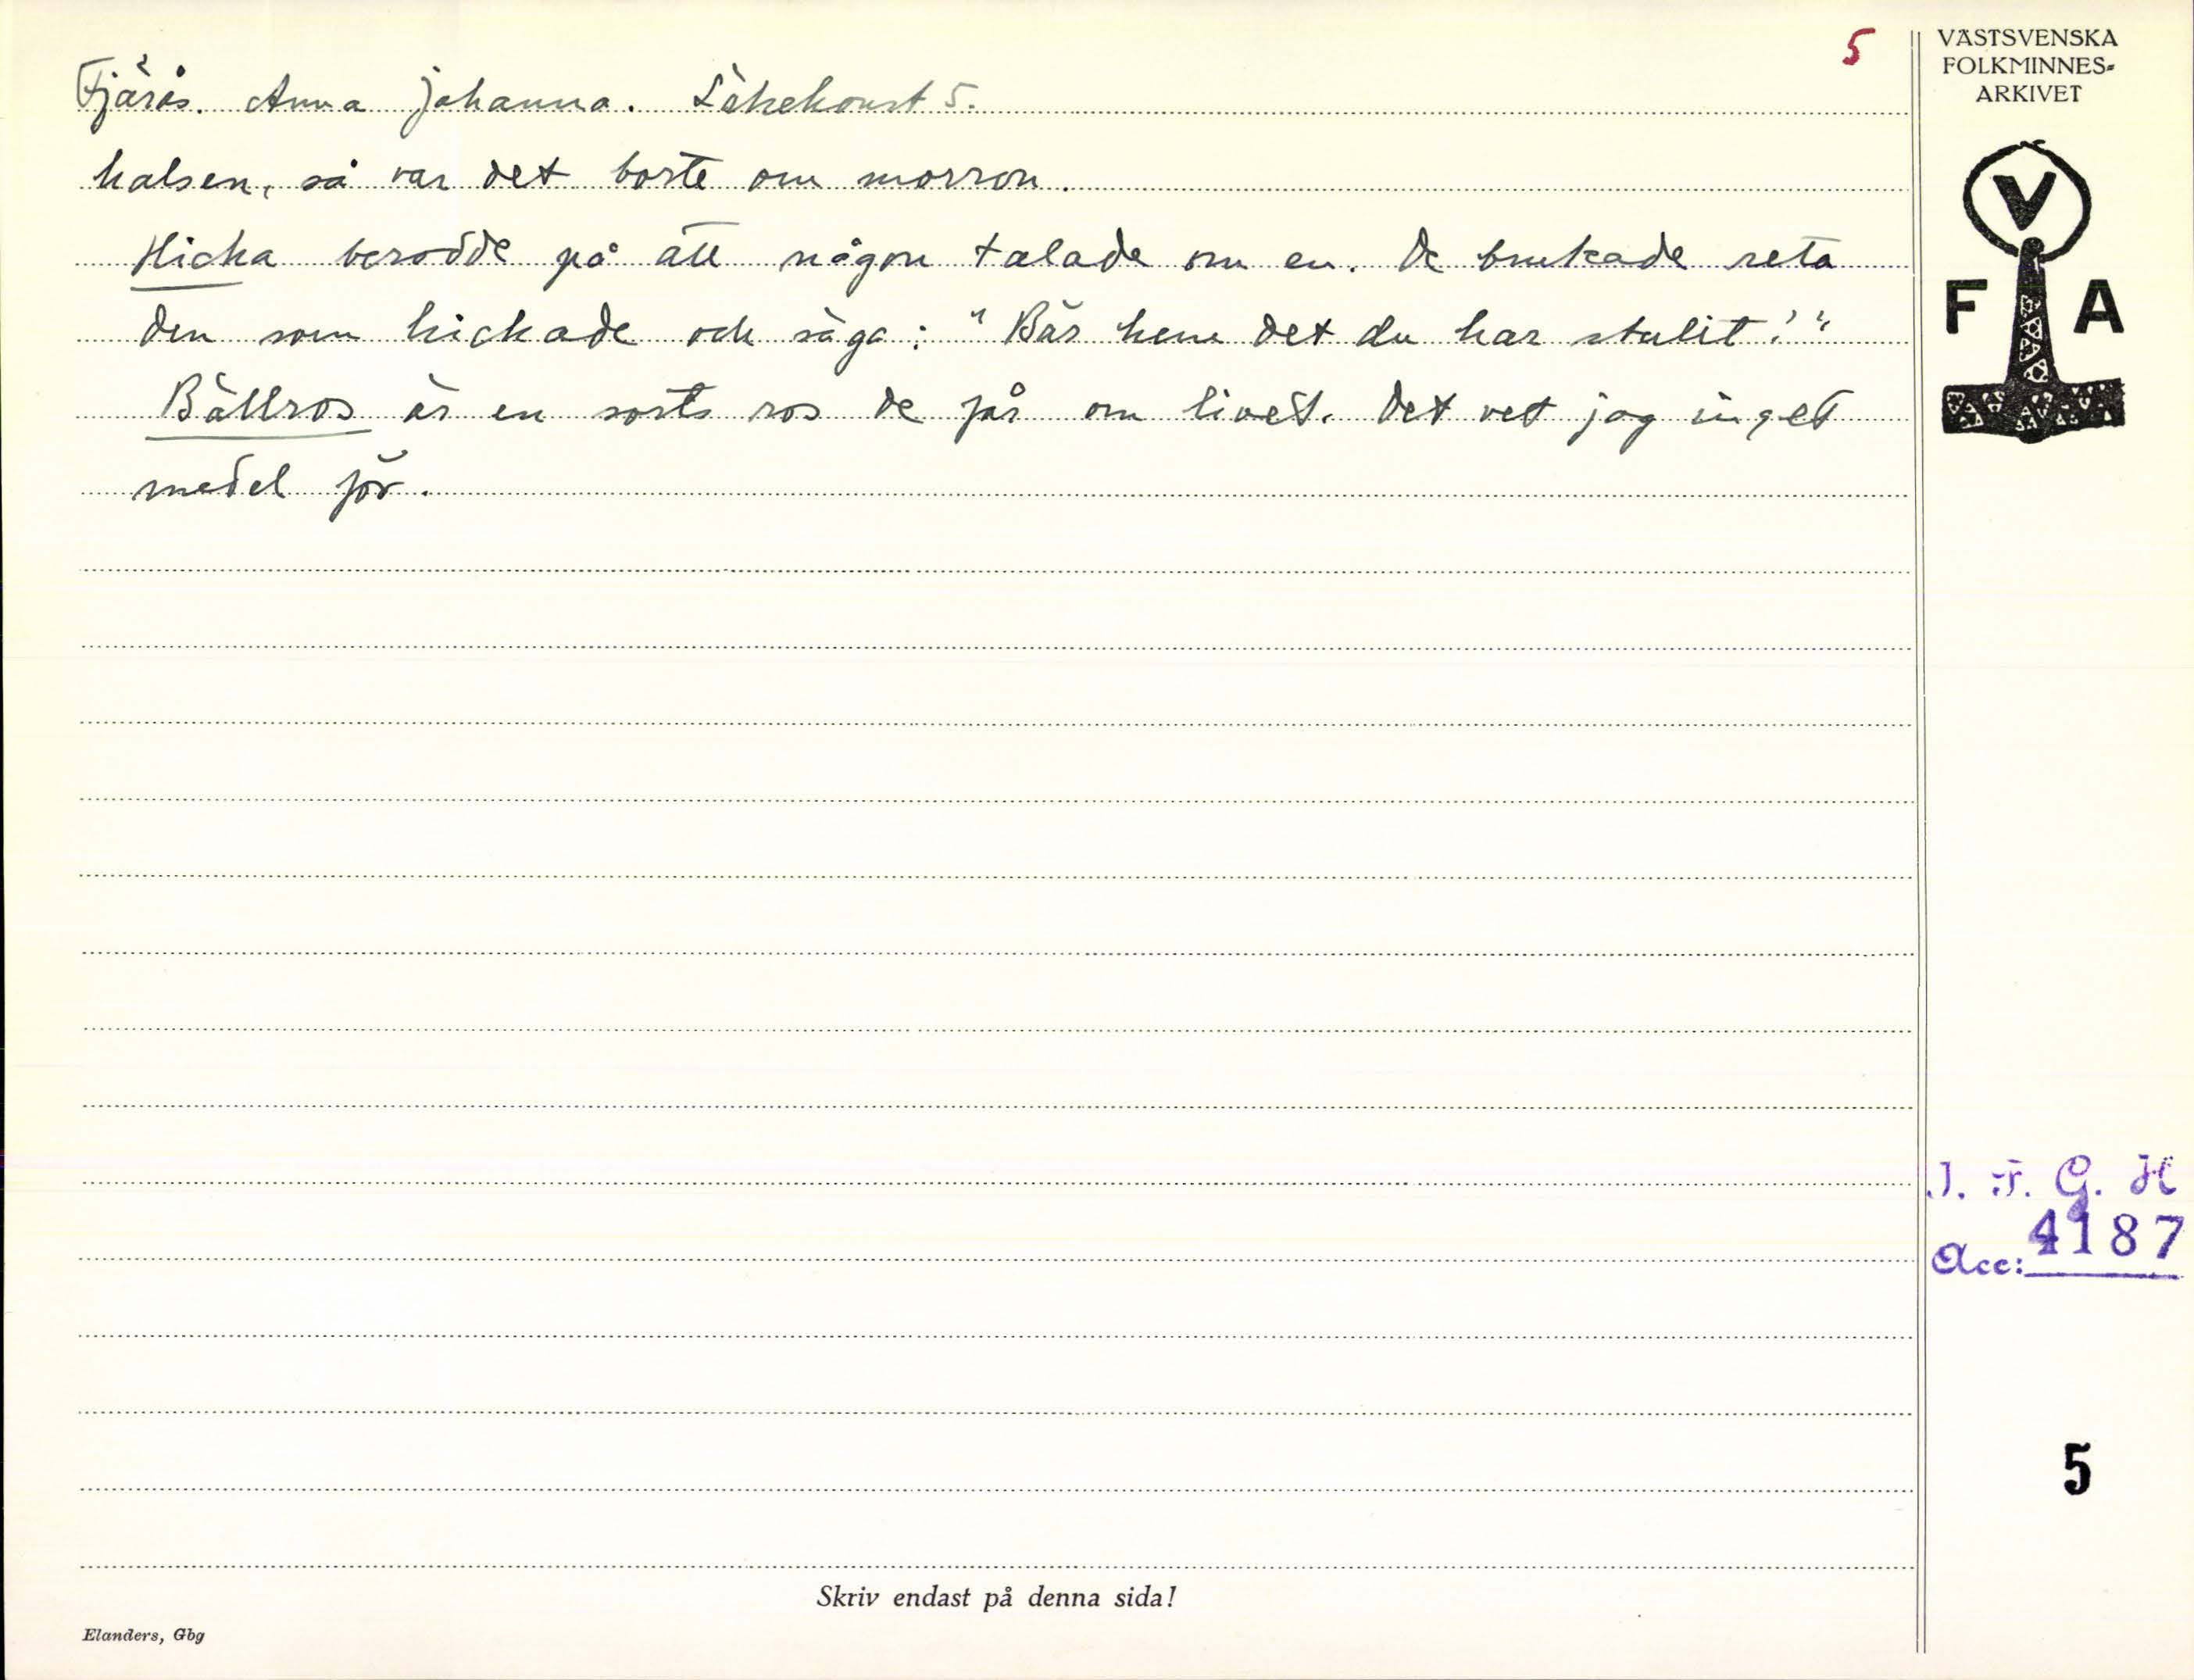 5
VÄSTSVENSKA
FOLKMINNES-
ARKIVET
Fjärås. Anna Johanna. Läkekonst 5.
halsen, så var det borte om morron.
Hicka berodde på att någon talade om en. De brukade reta
den som hickade och säga: "Bär hem det du har stulit!"
Bällros är en sorts ros de får om livet. Det vet jag inget
medel för.
V
F A
I. F. G. H
Acc: 4187
5
Skriv endast på denna sida!
Elanders, Gbg